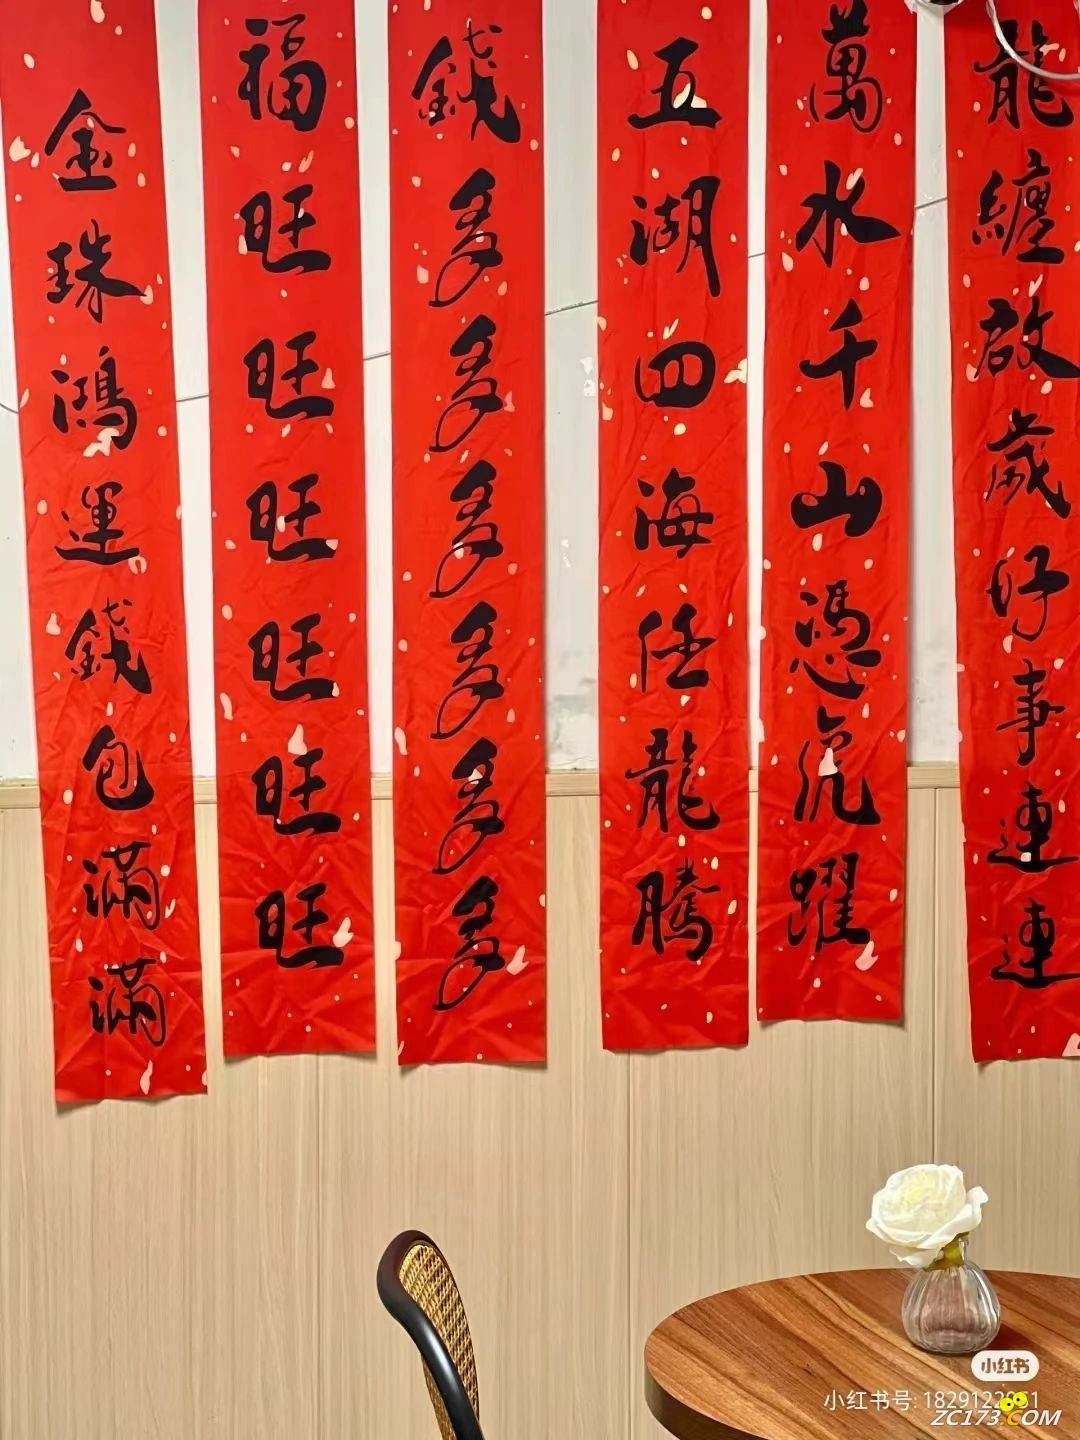 龍纏啟歲好事連連
萬水千山憑虎躍
五湖四海任龍騰
錢多多多多多多
福旺旺旺旺旺旺
金珠鴻運錢包滿滿
小红书
小红书号:
ZC173.COM